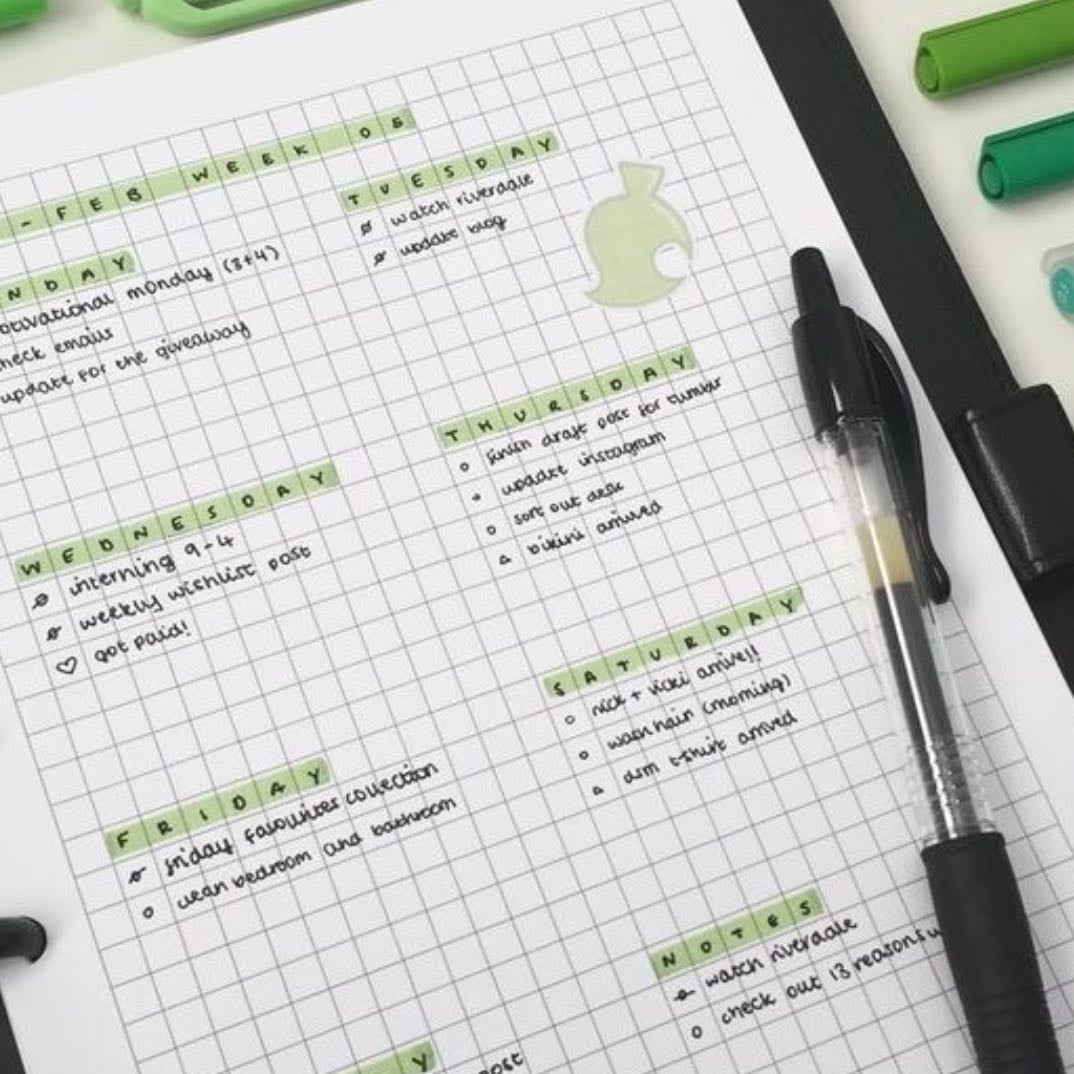 - FEB WEEK 06
NDAY
otivational monday (3+4)
heck emails
update for the giveaway
TUESDAY
watch riverdale
update blog
WEDNESDAY
interning 9-4
weekly wishlist post
got paid!
THURSDAY
finish draft post for tumblr
update instagram
sort out desk
bikini arrived
FRIDAY
friday favourites collection
clean bedroom and bathroom
SATURDAY
nick + vicki arrive!!
wash hair (morning)
t-shirt arrived
NOTES
watch riverdale
check out 13 reasons w
Y
post